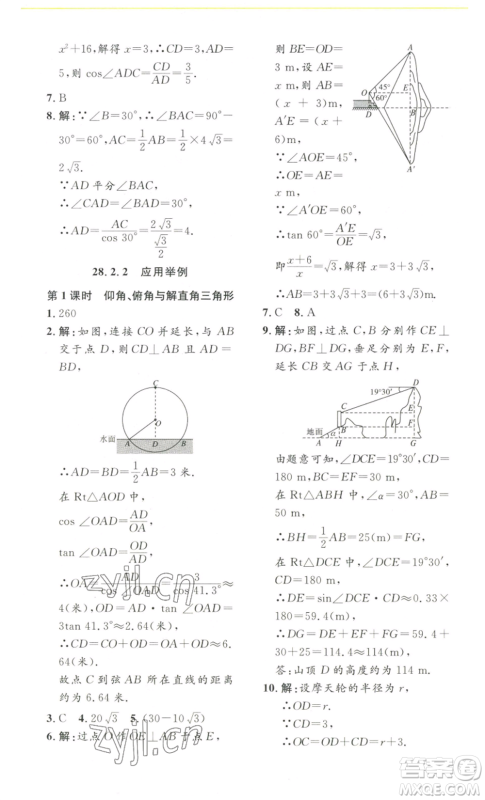 x²+16,解得 x=3,∴CD=3,AD=
5,则 cos∠ADC=CD/AD=3/5.
7. B
8. 解:∵∠B=30°,∴∠CAB=90°-
30°=60°,AC=1/2AB=1/2×4√3=
2√3.
∵AD 平分∠BAC,
∴∠CAD=∠BAD=30°.
∴AD=AC/cos 30°=2√3/(√3/2)=4.
28.2.2 应用举例
第 1 课时 仰角、俯角与解直角三角形
1. 260
2. 解:如图,连接 CO 并延长,与 AB
交于点 D,∵CD⊥AB,∴AD=
BD.
C
O
水面 A D B
∴AD=1/2AB=3 米.
在 Rt△AOD 中,
cos ∠OAD=AD/OA,
tan ∠OAD=OD/AD,
∴OA=AD/cos∠OAD=3/cos 41.3°≈
4(米),OD=AD·tan ∠OAD=
3tan 41.3°≈2.64(米).
∴CD=CO+OD=OA+OD≈
6.64(米).
故点 C 到弦 AB 的距离
约为 6.64 米.
3. C 4. 20√3 5. (30-10√3)
6. 解:过点 O 作 OE⊥AB 于点 E,
则 BE=OD=
3 m,设 AE=
x m,则 AB=
(x+3) m,
A′E=(x+
6) m.
∵∠AOE=45°,
∴OE=AE=
x m.
∵∠A′OE=60°,
∴tan 60°=A′E/OE,
A
O 45° E
60°
D B
A′
即(x+6)/x=√3,解得 x=3+3√3.
∴AB=3+3√3+3=6+3√3(m).
7. C 8. A
9. 解:如图,过点 C 分别作 CE⊥
DG,BF⊥DG,垂足分别为 E,F,
延长 CB 交 AG 于点 H.
19°30′ D
C E
B F
地面 α
A H G
由题意可知,∠DCE=19°30′,CD=
180 m,BC=EF=60 m.
在 Rt△ABH 中,∠α=30°,AB=
50 m,
∴BH=1/2AB=25(m)=FG.
在 Rt△DCE 中,∠DCE=19°30′,
CD=180 m,
∴DE=sin∠DCE·CD≈0.33×
180=59.4(m).
∴DG=DE+EF+FG=59.4+
30+25=114.4≈114(m).
答:山顶 D 的高度约为 114 m.
10. 解:设摩天轮的半径为 r,
∴OD=r.
∵CD=3,
∴OC=OD-CD=r-3.
zyjl.cn
zyjl.cn
答案圈
MXQE.COM